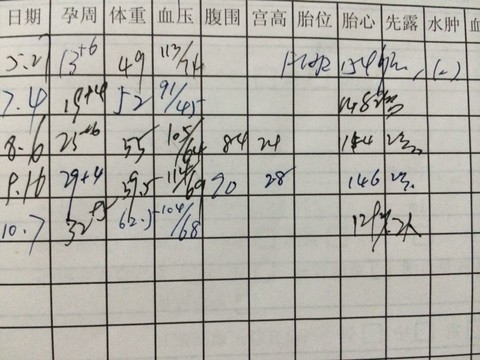 日期 孕周 体重 血压 腹围 宫高 胎位 胎心 先露 水肿 血
5.21 13+6 49 113/74 (-)
7.4 19+4 52 91/45 148
8.6 25 55 105/64 84 24 144
9.16 29+4 59.5 114/69 90 28 146
10.7 32 62.5 104/68